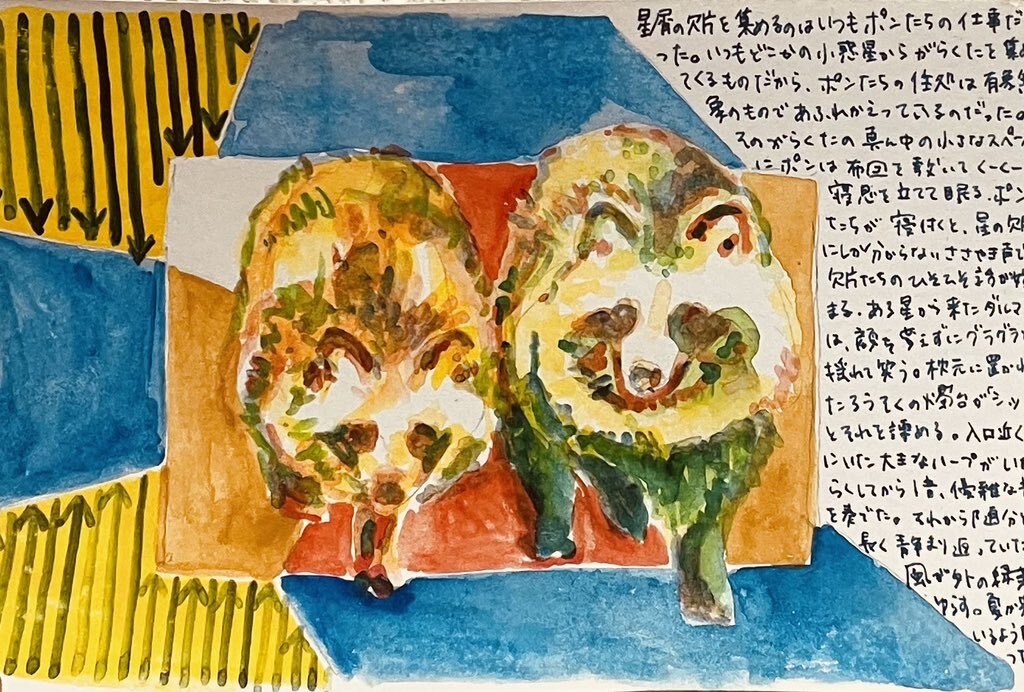 星屑の欠片を集めるのはいつもポンたちの仕事だ
った。いつもどこかの小惑星からがらくたを集め
てくるものだから、ポンたちの住処は有象無
象のものであふれかえっているのだった。
そのがらくたの真ん中の小さなスペー
にポンは布団を敷いてくーくー
寝息を立てて眠る。ポン
たちが寝付くと、星の欠
にしか分からないささやき声で
欠片たちのひそひそ話が始
まる。ある星から来たダルマ
は、顔を変えずにグラグラ
揺れて笑う。枕元に置かれ
たろうそくの燭台が「シッ
とそれを諫める。入口近く
にいた大きなハープがしば
らくしてから1音、優雅な
を奏でた。それから随分
長く静まり返っていた
風が外の緑
ゆらす。夏が
いるよう